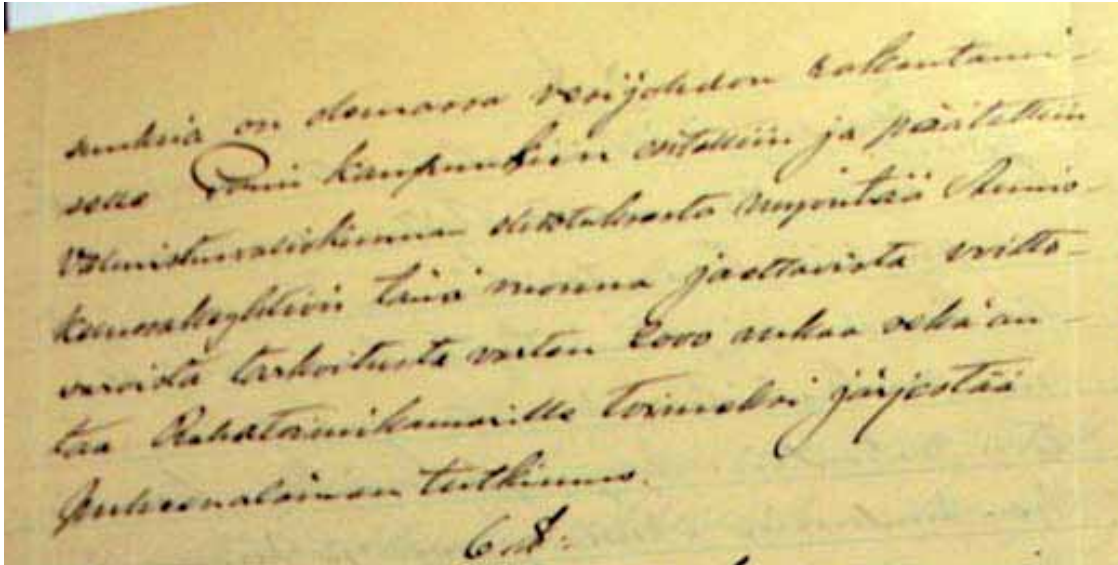 suuksia on olemassa vesijohdon rakentami-
seksi Poriin kaupunkiin esitettiin ja päätettiin
Valmistusvaliokunnan ehdotuksesta myöntää Annis-
kelunosakeyhtiön tänä vuonna jaettavista voitto-
varoista tarkoitusta varten 2000 markkaa sekä an-
taa Rahatoimikamarille toimeksi järjestää
puheenalainen tutkimus.
6 §: